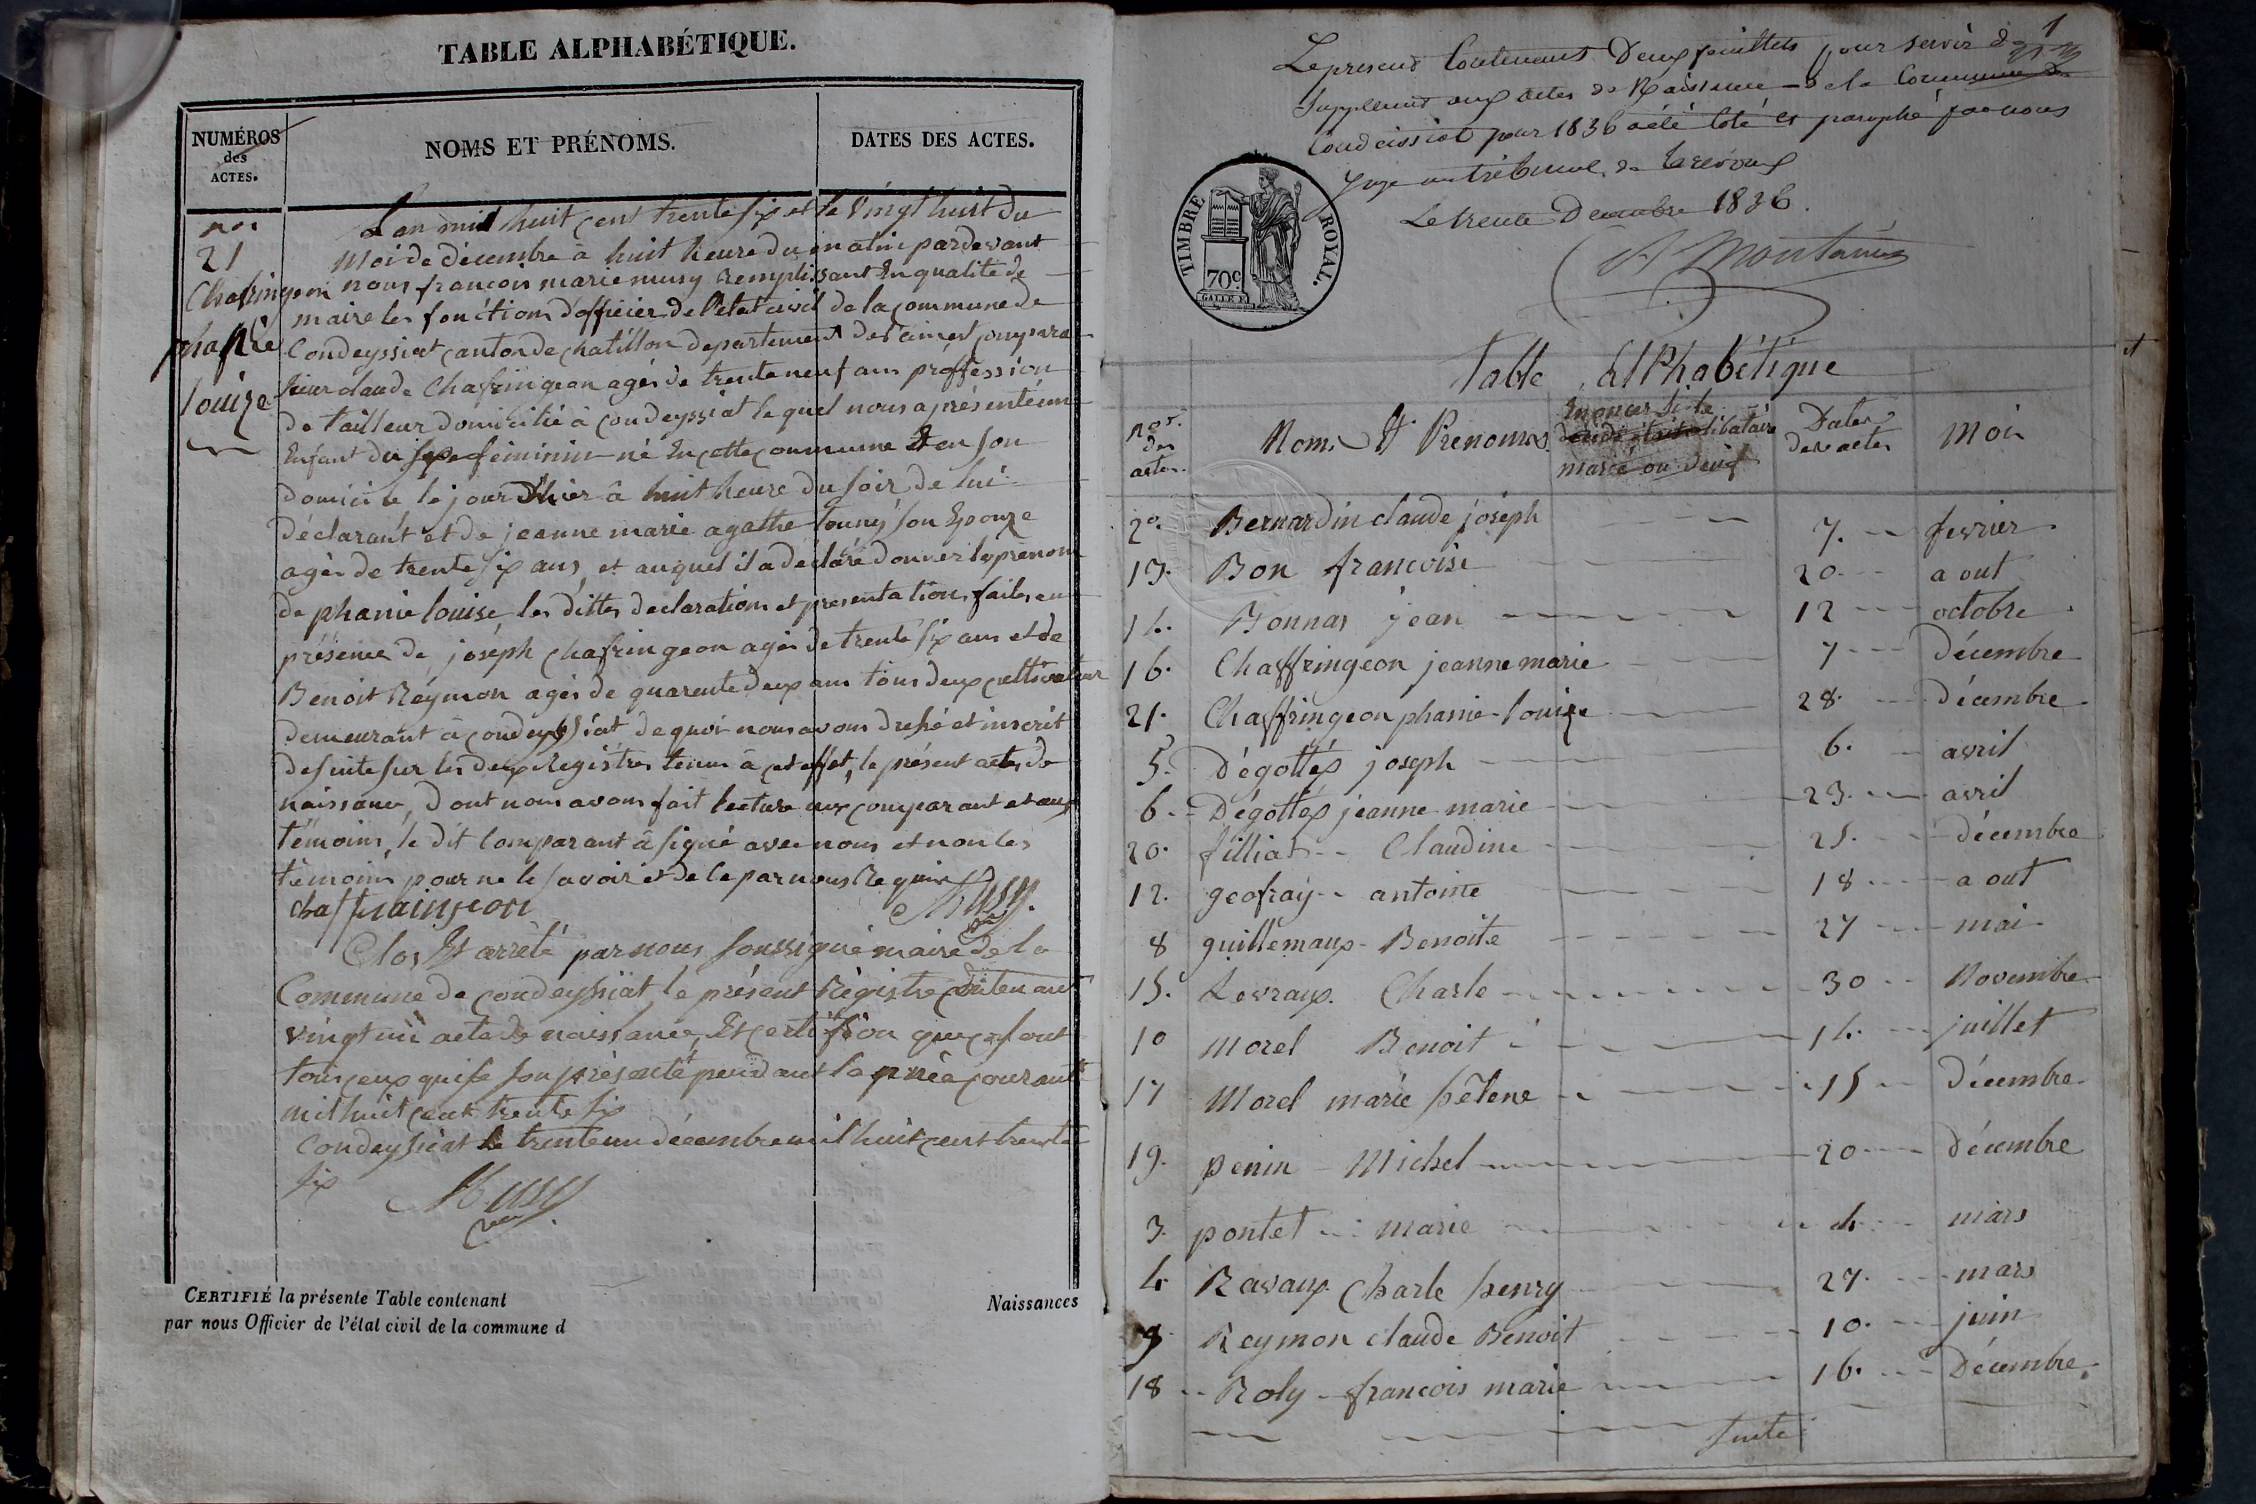 TABLE ALPHABÉTIQUE.
NUMÉROS
des
ACTES.
NOMS ET PRÉNOMS.
DATES DES ACTES.
nos
21
Chafringeon
phanie
louize
L'an mil huit cent trente six et le vingt huit du
Moi de décembre à huit heure du matin pardevant
nous françois marie musy remplissant En qualité de
maire les fonctions d'officier de l'état civil de la commune de
Condeyssiat canton de chatillon departement de l'ain est comparu
sieur claude Chafringeon agés de trente neuf ans proffession
de tailleur domicilié à condeyssiat lequel nous a présenté un
Enfant du sexe féminin né En cette commune Et en son
domicile le jour D'hier à huit heure du soir de lui
déclarant et de jeanne marie agathe son Epouze
agés de trente six ans, et auquel il a déclaré donner le prenom
de phanie louise, les dittes declarations et presentations faites en
présence de joséph chafringeon agés de trente six ans et de
Benoit Réymon agés de quarente deux ans tous deux cultivateur
demeurant à condeyssiat de quoi nous avons dressé et inscrit
desuite sur les deux Régistres tenus à cet effet, le présent acte de
naissance, dont nous avons fait lecture aux comparant et aux
témoins, le dit Comparant à signé avec nous et non les
témoins pour ne le savoir et de ce par nous Requis
chaffraingeon Musy
Clos Et arrêté par nous soussigné maire de la
Commune de condeyssiat, le présent Régistre contenant
vingt un acte de naissance, Et certifion que ce sont
tous ceux qui se son présenté pendant la née courant
mil huit cent trente six
Condeyssiat le trente un décembre mil huit cent trente
six Musy
CERTIFIÉ la présente Table contenant
Naissances
par nous Officier de l'état civil de la commune d
1
Le present Contenant Deux feuillets pour servir de
Supplement aux actes de Naissance de la Commune de
Condeissiat pour 1836 a été coté et paraphé par nous
Juge au tribunal de Trevoux
Le trente Decembre 1836.
TIMBRE ROYAL.
70c
Table alPhabétique
nos. des actes.
Noms Et Prenoms
Enoncer si le
décédé était célibataire
marié ou veuf
Dates des actes
Mois
2. Bernardin claude joséph 7. fevrier
13. Bon francoise 20 aout
14. Bonnas jean 12 octobre
16. Chaffringeon jeanne marie 7 décembre
21. Chaffringeon phanie louize 28. décembre
5. Dégottéx joseph 6. avril
6. Dégottéx jeanne marie 23. avril
20. filliat Claudine 25. décembre
12. geofray antoine 18 aout
8 guillemaux Benoite 27 mai
15. Levraux Charle 30 Novembre
10 Morel Benoit 14. juillet
17 Morel marie hélene 15 Décembre
19. penin Michel 20 Décembre
3. pontet marie 4. mars
4. Ravaux Charle henry 27. mars
9. Reymon claude Benoit 10. juin
18 Roly francois marie 16. Décembre.
suite